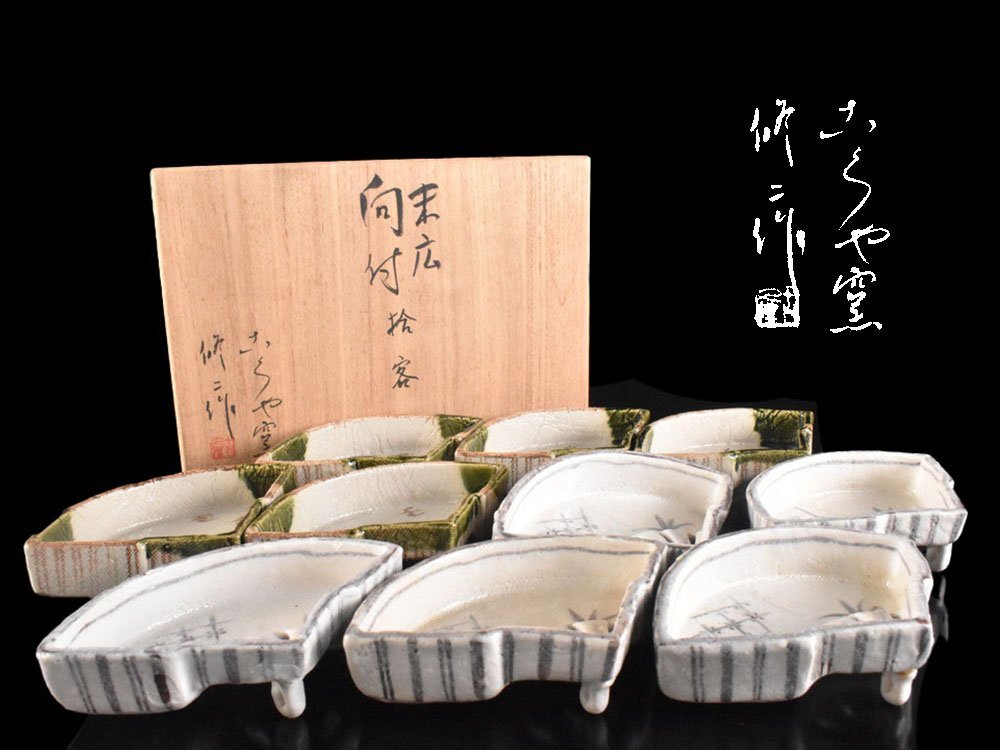 末広
向付 拾客
古久や窯
修二作
古久や窯
修二作